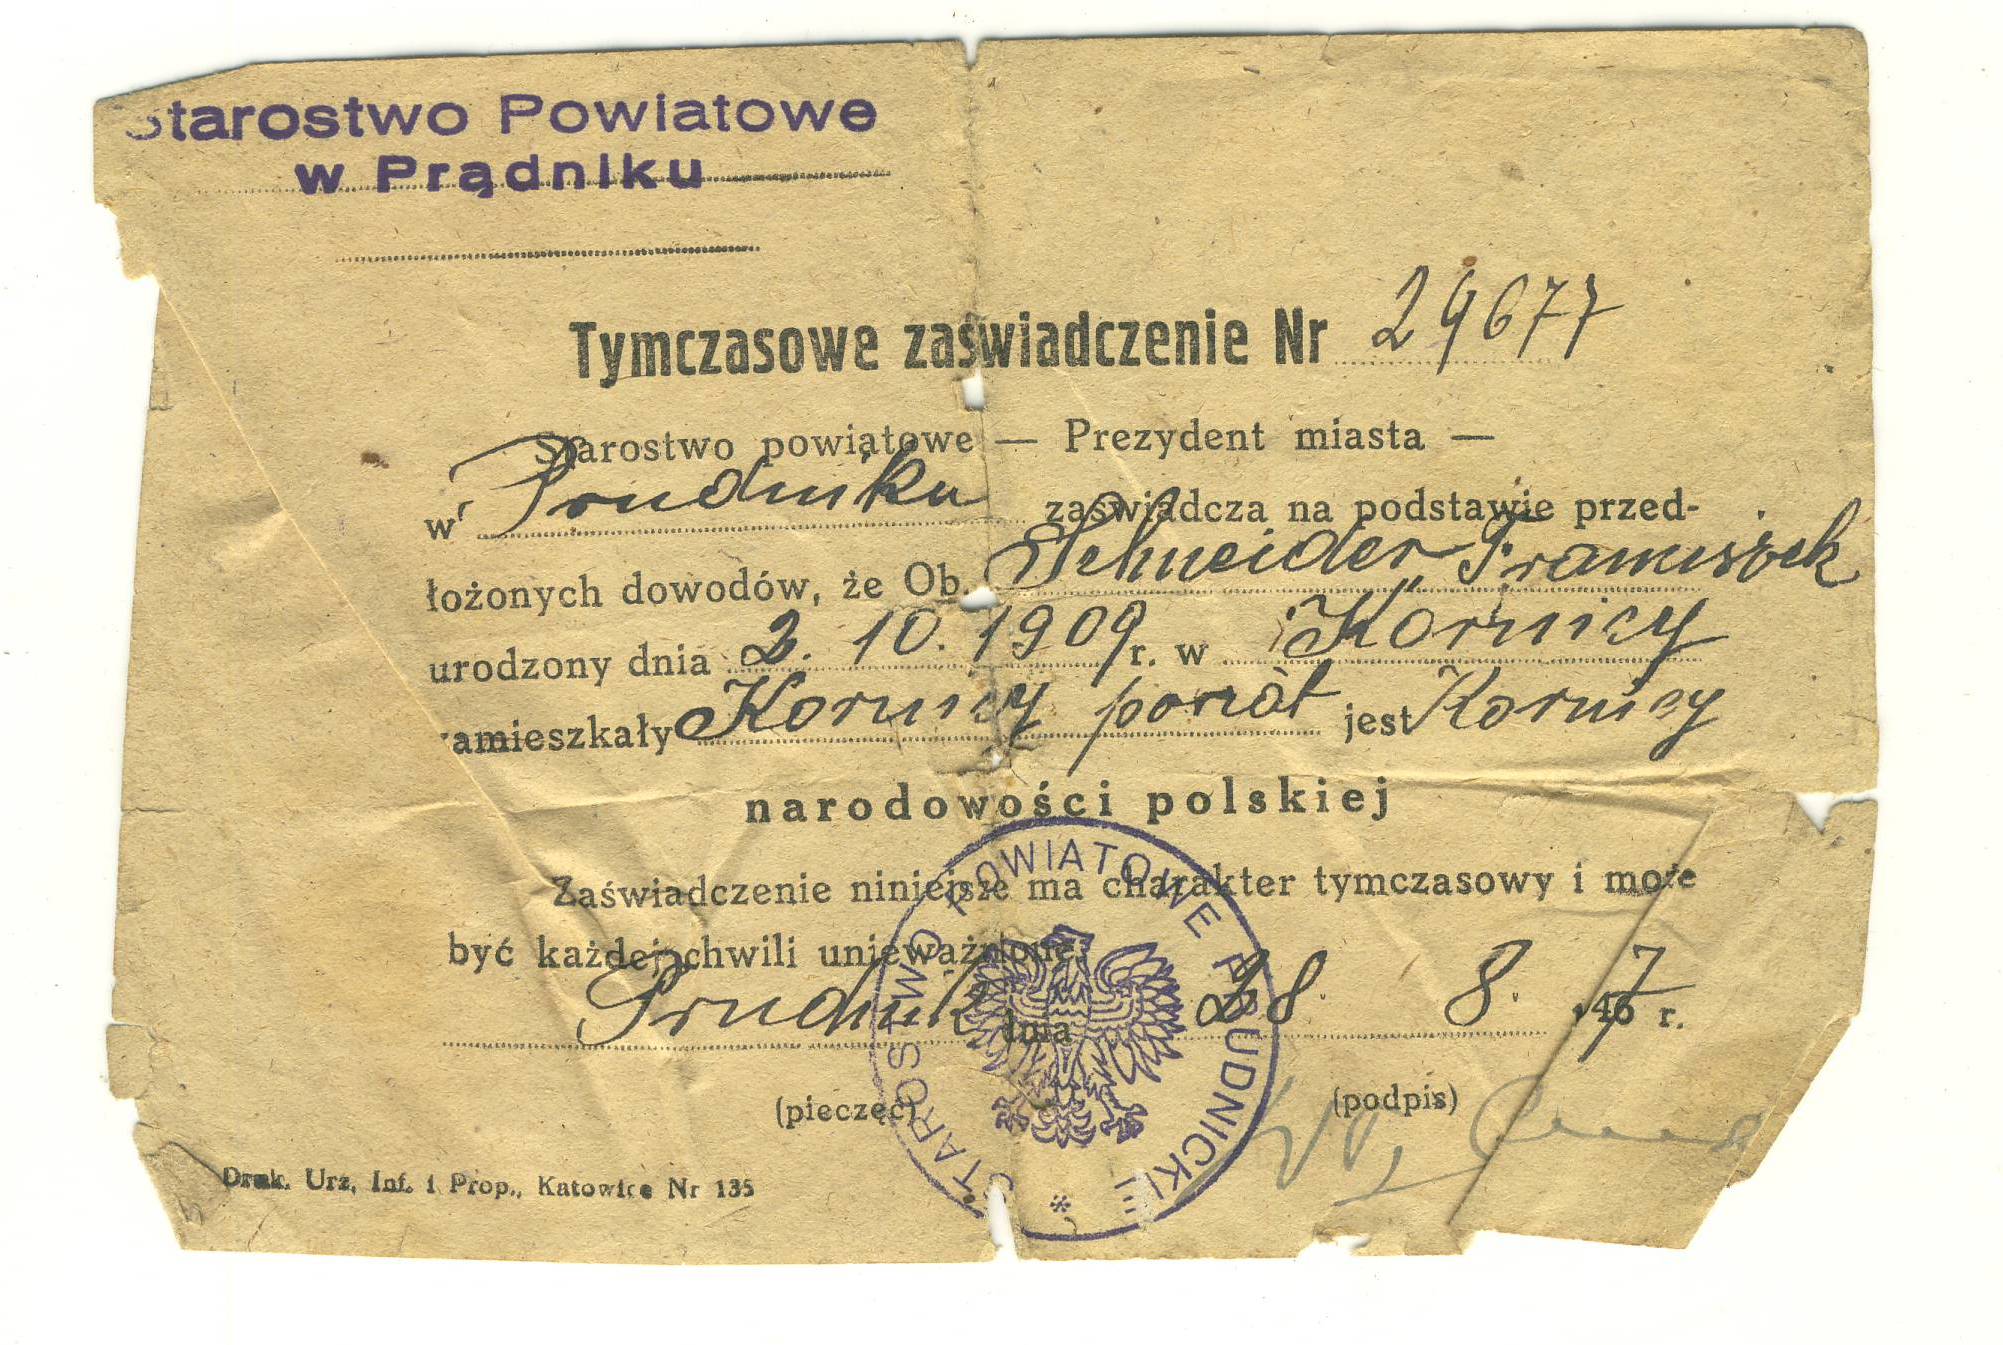 Starostwo Powiatowe
w Prądniku
Tymczasowe zaświadczenie Nr 29677
Starostwo powiatowe — Prezydent miasta —
w Prudniku zaświadcza na podstawie przed-
łożonych dowodów, że Ob. Schneider Franciszek
urodzony dnia 2. 10. 1909 r. w Kornicy
zamieszkały Kornicy powiat jest Kornicy
narodowości polskiej
Zaświadczenie niniejsze ma charakter tymczasowy i może
być każdej chwili unieważnione.
Prudnik dnia 28. 8. 467 r.
(pieczęć) (podpis)
STAROSTWO POWIATOWE PRUDNICKIE *
Druk. Urz. Inf. i Prop., Katowice Nr 135